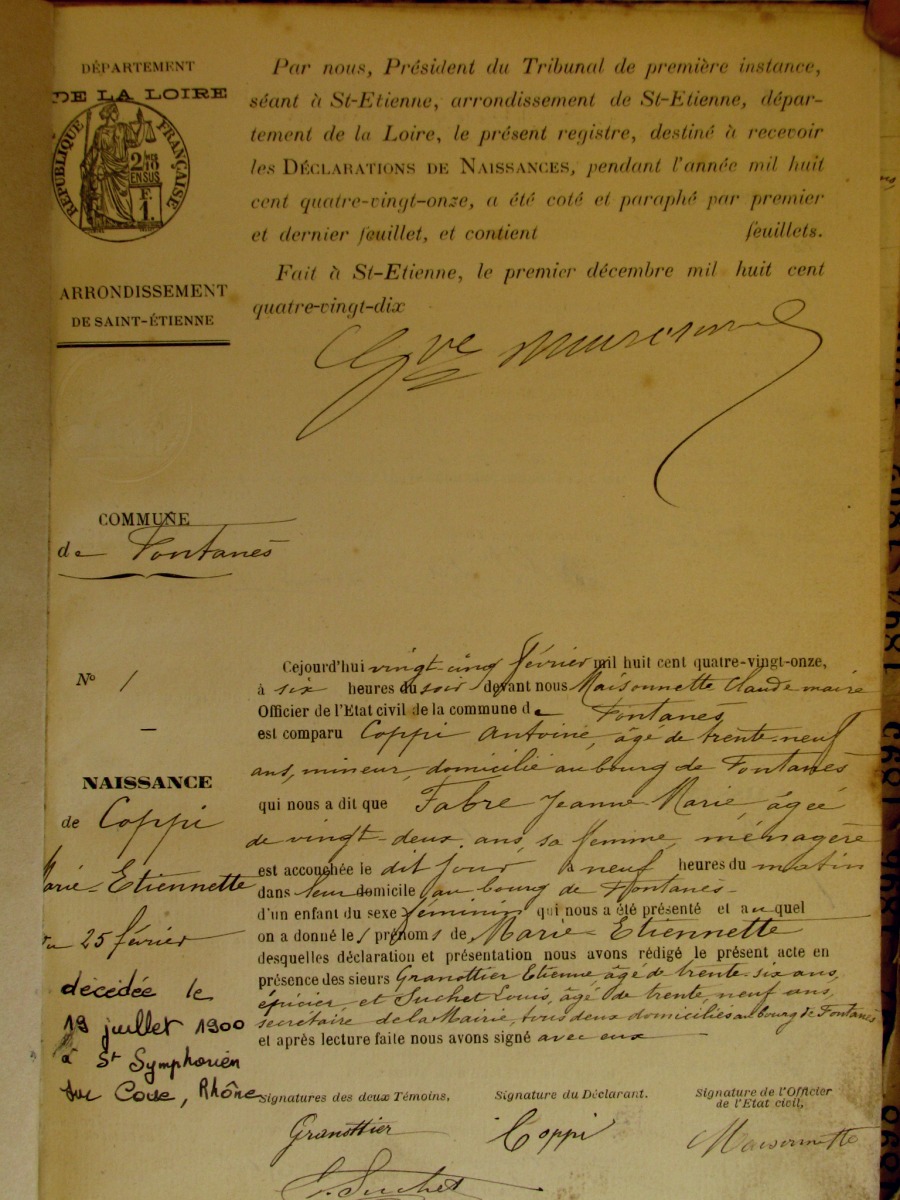 DÉPARTEMENT
DE LA LOIRE
RÉPUBLIQUE FRANÇAISE
2/10
EN SUS
F.
1.
ARRONDISSEMENT
DE SAINT-ÉTIENNE
Par nous, Président du Tribunal de première instance,
séant à St-Etienne, arrondissement de St-Etienne, dépar-
tement de la Loire, le présent registre, destiné à recevoir
les DÉCLARATIONS DE NAISSANCES, pendant l'année mil huit
cent quatre-vingt-onze, a été coté et paraphé par premier
et dernier feuillet, et contient feuillets.
Fait à St-Etienne, le premier décembre mil huit cent
quatre-vingt-dix
COMMUNE
de Fontanès
N° 1
NAISSANCE
de Coppi
Marie-Etiennette
25 février
décédée le
19 juillet 1900
à St Symphorien
sur Coise, Rhône
Cejourd'hui vingt-cinq février mil huit cent quatre-vingt-onze,
à six heures du soir devant nous Maisonnette Claude maire
Officier de l'Etat civil de la commune de Fontanès
est comparu Coppi Antoine, âgé de trente-neuf
ans, mineur, domicilié au bourg de Fontanès
qui nous a dit que Fabre Jeanne Marie, âgée
de vingt-deux ans, sa femme, ménagère
est accouchée le dit jour à neuf heures du matin
dans leur domicile au bourg de Fontanès-
d'un enfant du sexe féminin qui nous a été présenté et auquel
on a donné les prénoms de Marie-Etiennette
desquelles déclaration et présentation nous avons rédigé le présent acte en
présence des sieurs Granottier Etienne, âgé de trente-six ans,
épicier et Suchet Louis, âgé de trente neuf ans,
secrétaire de la Mairie, tous deux domiciliés au bourg de Fontanès
et après lecture faite nous avons signé avec eux
Signatures des deux Témoins,
Signature du Déclarant.
Signature de l'Officier
de l'Etat civil,
Granottier
Coppi
Maisonnette
Suchet